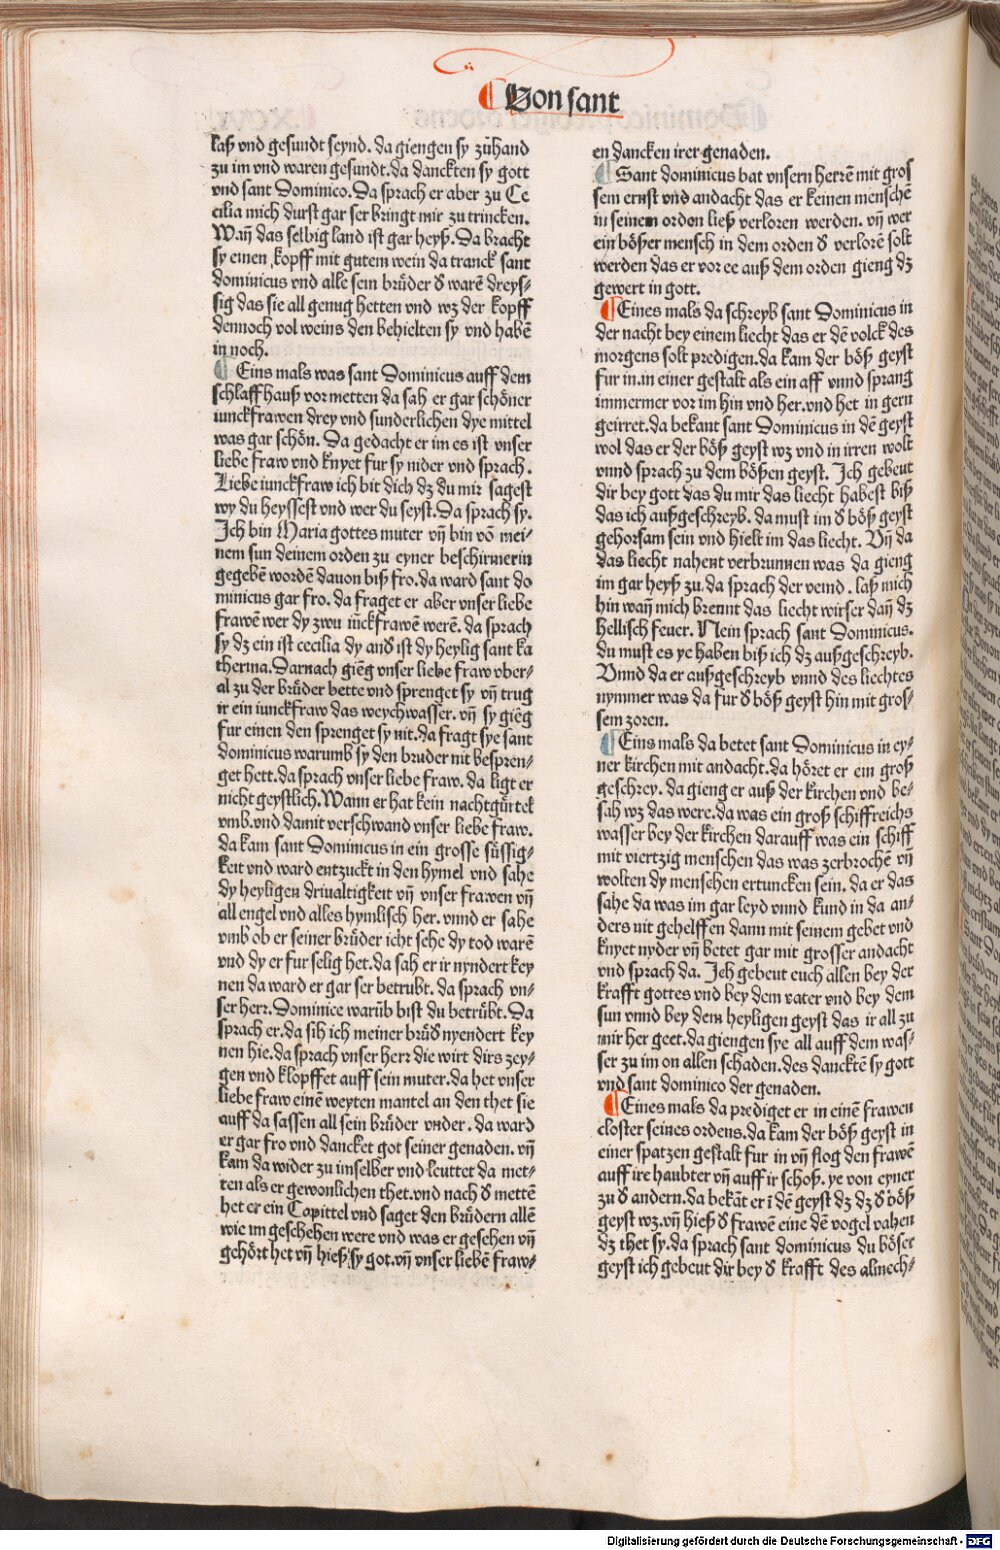 Von sant
laß vnd gesundt seynd. da giengen sy zůhand
zu im vnd waren gesundt. da danckten sy gott
vnd sant Dominico. Da sprach er aber zu Ce
cilia mich durst gar ser bringt mir zu trincken.
Wañ das selbig land ist gar heyß. Da bracht
sy einen kopff mit gutem wein da tranck sant
dominicus vnd alle sein brüder d̕ warē dreys-
sig das sie all genug hetten vnd wz der kopff
dennoch vol weins den behielten sy vnd habē
in noch.
Eins mals was sant Dominicus auff dem
schlaffhauß vor metten da sah er gar schöner
iunckfrawen drey vnd sunderlichen dye mittel
was gar schön. Da gedacht er im es ist vnser
liebe fraw vnd knyet fur sy nider vnd sprach.
Liebe iunckfraw ich bit dich dz du mir sagest
wy du heyssest vnd wer du seyst. Da sprach sy.
Ich bin Maria gottes muter vñ bin vō mei-
nem sun deinem orden zu eyner beschirmerin
gegebē wordē dauon biß fro. da ward sant do
minicus gar fro. da fraget er aber vnser liebe
frawē wer dy zwu iūckfrawē werē. da sprach
sy dz ein ist cecilia dy and̕ ist dy heylig sant ka
therina. Darnach giēg vnser liebe fraw vber-
al zu der brüder bette vnd sprenget sy vñ trug
ir ein iunckfraw das weychwasser. vñ sy giēg
fur einen den sprenget sy nit. da fragt sye sant
dominicus warumb sy den bruder nit bespren-
get hett. da sprach vnser liebe fraw. da ligt er
nicht geystlich. Wann er hat kein nachtgürtel
vmb. vnd damit verschwand vnser liebe fraw.
da kam sant Dominicus in ein grosse süssig-
keit vnd ward entzuckt in den hymel vnd sahe
dy heyligen driualtigkeit vñ vnser frawen vñ
all engel vnd alles hymlisch her. vnnd er sahe
vmb ob er seiner brüder icht sehe dy tod warē
vnd dy er fur selig het. da sah er ir nyndert key
nen da ward er gar ser betrubt. da sprach vn-
ser herr. Dominice warūb bist du betrübt. Da
sprach er. da sih ich meiner brüd̕ nyendert key
nen hie. da sprach vnser herz die wirt dirs zey-
gen vnd klopffet auff sein muter. da het vnser
liebe fraw einē weyten mantel an den thet sie
auff da sassen all sein brüder vnder. da ward
er gar fro vnd dancket got seiner genaden. vñ
kam da wider zu imselber vnd leuttet da met-
ten als er gewonlichen thet. vnd nach d̕ mettē
het er ein Capittel vnd saget den brüdern allē
wie im geschehen were vnd was er gesehen vñ
gehört het vñ hieß sy got. vñ vnser liebē fraw-
en dancken irer genaden.
Sant dominicus bat vnsern herrē mit gros
sem ernst vnd andacht das er keinen menschē
in seinem orden ließ verloren werden. vñ wer
ein bößer mensch in dem orden d̕ verlorē solt
werden das er vor ee auß dem orden gieng dz
gewert in gott.
Eines mals da schreyb sant Dominicus in
der nacht bey einem liecht das er dē volck des
morgens solt predigen. da kam der böß geyst
fur in. in einer gestalt als ein aff vnnd sprang
immermer vor im hin vnd her. vnd het in gern
geirret. da bekant sant Dominicus in dē geyst
wol das er der böß geyst wz vnd in irren wolt
vnnd sprach zu dem bößen geyst. Ich gebeut
dir bey gott das du mir das liecht habest biß
das ich außgeschreyb. da must im d̕ böß geyst
gehorsam sein vnd hielt im das liecht. Vñ da
das liecht nahent verbrunnen was da gieng
im gar heyß zu. da sprach der veind. laß mich
hin wañ mich brennt das liecht wirser dañ dz
hellisch feuer. Nein sprach sant Dominicus.
du must es ye haben biß ich dz außgeschreyb.
Vnnd da er außgeschreyb vnnd des liechtes
nymmer was da fur d̕ böß geyst hin mit gros-
sem zoren.
Eins mals da betet sant Dominicus in ey-
ner kirchen mit andacht. da höret er ein groß
geschrey. da gieng er auß der kirchen vnd be-
sah wz das were. da was ein groß schiffreichs
wasser bey der kirchen darauff was ein schiff
mit viertzig menschen das was zerbrochē vñ
wolten dy menschen ertuncken sein. da er das
sahe da was im gar leyd vnnd kund in da an-
ders nit gehelffen dann mit seinem gebet vnd
knyet nyder vñ betet gar mit grosser andacht
vnd sprach da. Ich gebeut euch allen bey der
krafft gottes vnd bey dem vater vnd bey dem
sun vnnd bey dem heyligen geyst das ir all zu
mir her geet. da giengen sye all auff dem was-
ser zu im on allen schaden. des dancktē sy gott
vnd sant dominico der genaden.
Eines mals da prediget er in einē frawen
closter seines ordens. da kam der böß geyst in
einer spatzen gestalt fur in vñ flog den frawē
auff ire haubter vñ auff ir schoß. ye von eyner
zu d̕ andern. da bekāt er ī dē geyst dz dz d̕ böß
geyst wz. vñ hieß d̕ frawē eine dē vogel vahen
dz thet sy. da sprach sant dominicus du böser
geyst ich gebeut dir bey d̕ krafft des almech-
Digitalisierung gefördert durch die Deutsche Forschungsgemeinschaft - DFG